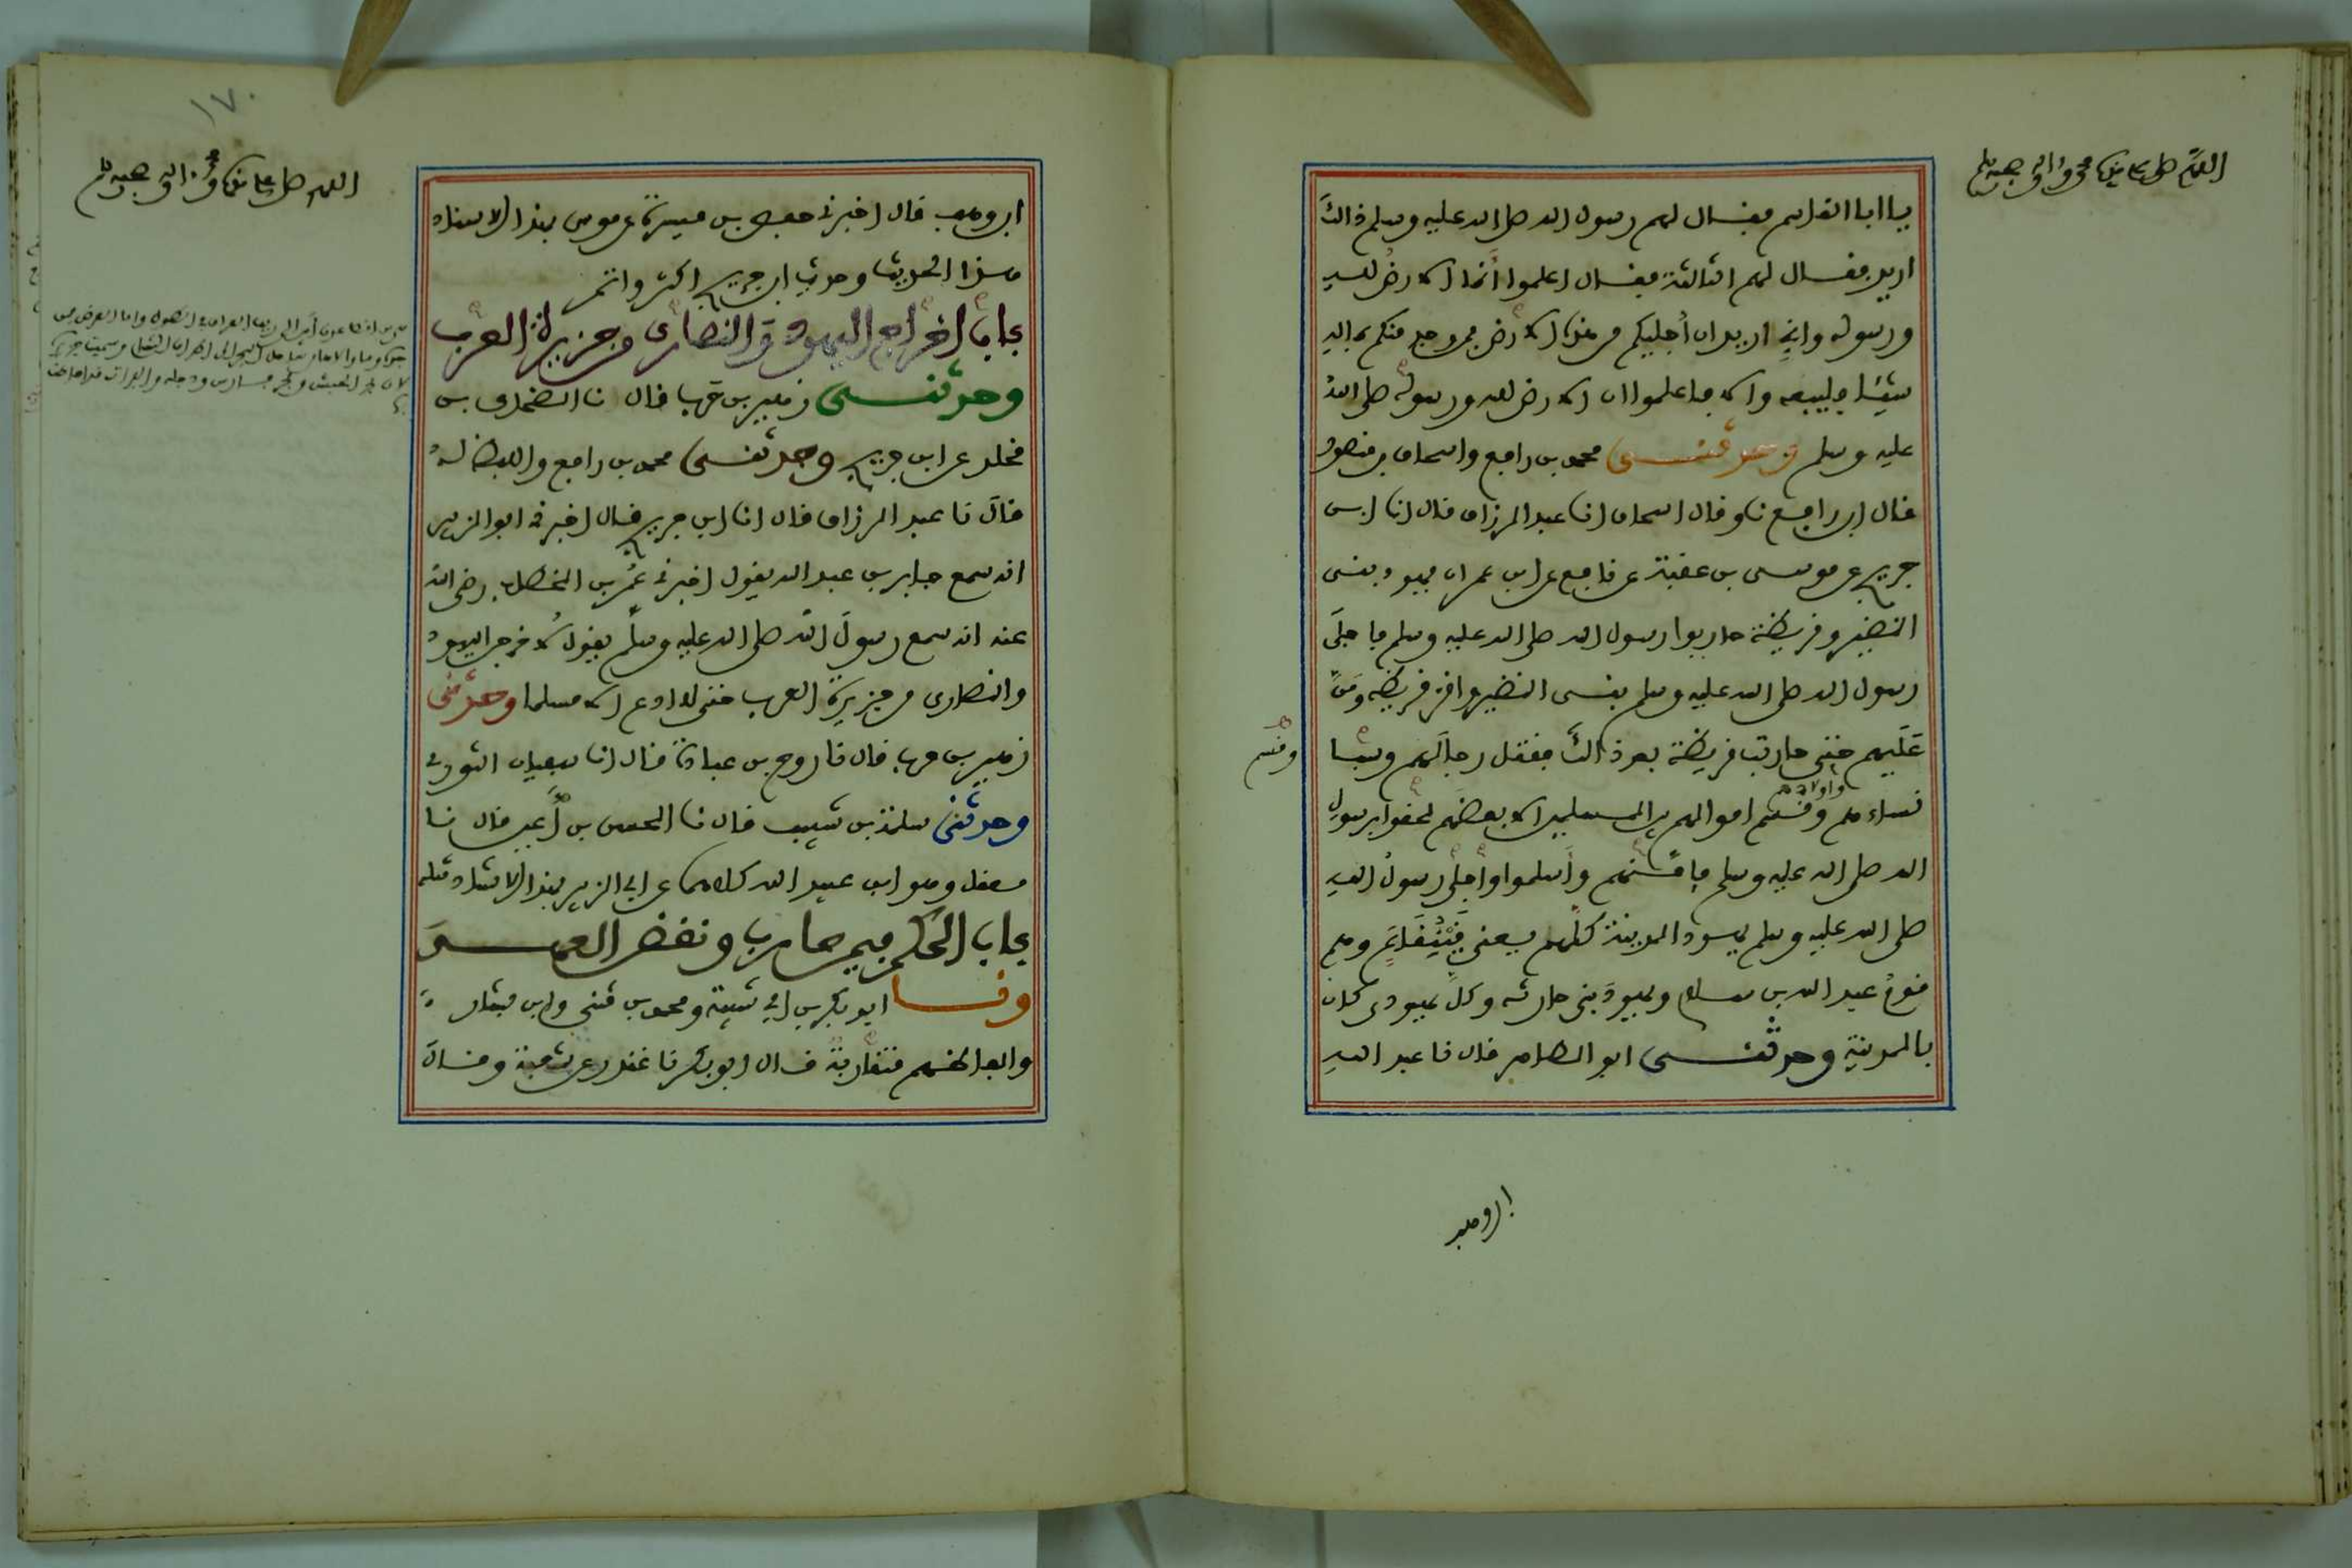 اللهم صل على سيدنا محمد واله وصحبه وسلم
يا ابا القاسم فقال لهم رسول الله صلى الله عليه وسلم ذالك
اريد فقال لهم الثالثة فقال اعلموا أنما الارض لله
ورسوله واني اريد ان أجليكم من هذه الارض فمن وجد منكم بماله
شيئا فليبعه والا فاعلموا ان الارض لله ورسوله صلى الله
عليه وسلم وحدثنى محمد بن رافع واسحاق بن منصور
قال ابن رافع نا وقال اسحاق انا عبد الرزاق قال انا ابن
جريج عن موسى بن عقبة عن نافع عن ابن عمر ان يهود بنى
النضير وقريظة حاربوا رسول الله صلى الله عليه وسلم فاجلى
رسول الله صلى الله عليه وسلم بنى النضير واقر قريظة ومن
عليهم حتى حاربت قريظة بعد ذالك فقتل رجالهم وسبا
وقسم
واولادهم
نساءهم وقسم اموالهم بين المسلمين الا بعضهم لحقوا برسول
الله صلى الله عليه وسلم فامنهم وأسلموا وأجلى رسول الله
صلى الله عليه وسلم يهود المدينة كلهم بنى قينقاع وهم
قوم عبد الله بن سلام ويهود بنى حارثة وكل يهودى كان
بالمدينة وحدثنى ابو الطاهر قال نا عبد الله
ابن وهب
١٧٠
اللهم صل على سيدنا محمد واله وصحبه وسلم
ابن وهب قال اخبرنى حفص بن ميسرة عن موسى بهذا الاسناد
هذا الحديث وحديث ابن جريج اكثر واتم
باب اخراج اليهود والنصارى من جزيرة العرب
وحدثنى زهير بن حرب قال نا الضحاك بن
مخلد عن ابن جريج وحدثنى محمد بن رافع واللفظ له
قال نا عبد الرزاق قال انا ابن جريج قال اخبرنى ابو الزبير
انه سمع جابر بن عبد الله يقول اخبرنى عمر بن الخطاب رضى الله
عنه انه سمع رسول الله صلى الله عليه وسلم يقول لاخرجن اليهود
والنصارى من جزيرة العرب حتى لا ادع الا مسلما وحدثنى
زهير بن حرب قال نا روح بن عبادة قال انا سفيان الثورى
وحدثنى سلمة بن شبيب قال نا الحسن بن أعين قال نا
معقل وهو ابن عبيد الله كلاهما عن ابى الزبير بهذا الاسناد مثله
باب الحكم فيمن حارب ونقض العهد
ونا ابو بكر بن ابى شيبة ومحمد بن مثنى وابن بشار
والفاظهم متقاربة قال ابو بكر نا غندر عن شعبة وقال